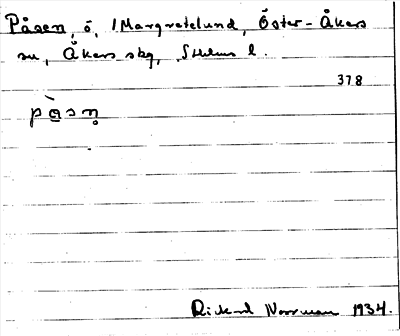 Påsen, ö, /Margretelund, Öster-Åkers
sn, Åkers skg, Sthlms l.
378
pàsn̥
Rickard Norrman 1934.